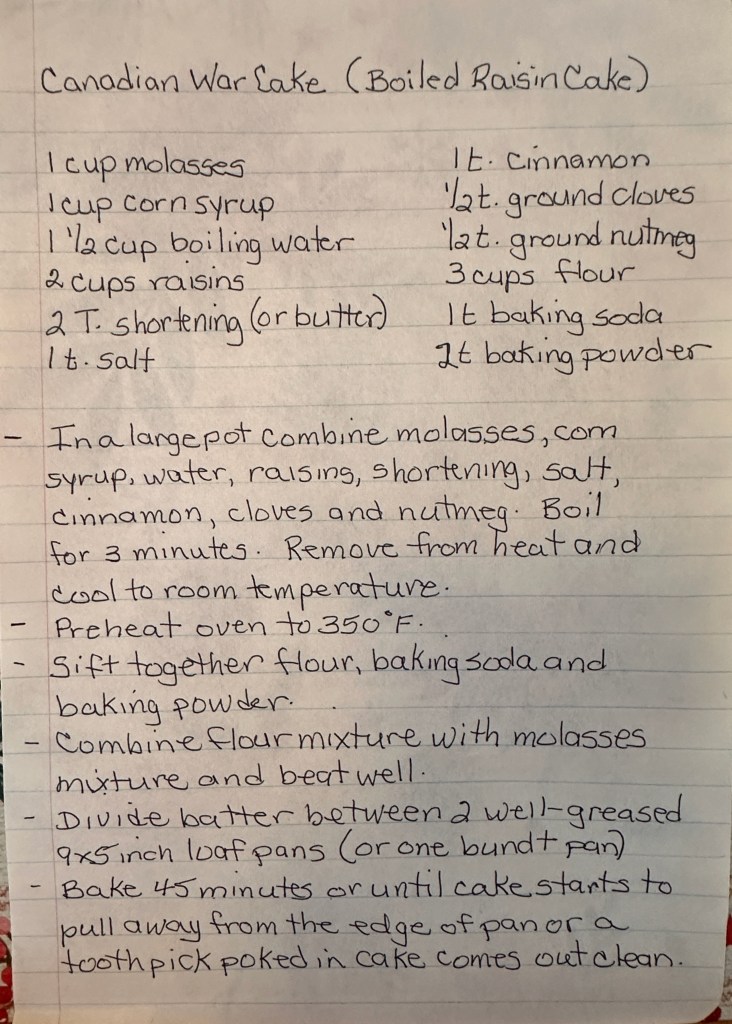 Canadian War Cake (Boiled Raisin Cake)
1 cup molasses
1 cup corn syrup
1 1/2 cup boiling water
2 cups raisins
2 T. shortening (or butter)
1 t. salt
1 t. cinnamon
1/2 t. ground cloves
1/2 t. ground nutmeg
3 cups flour
1 t baking soda
2t baking powder
- In a large pot combine molasses, corn
syrup, water, raisins, shortening, salt,
cinnamon, cloves and nutmeg. Boil
for 3 minutes. Remove from heat and
cool to room temperature.
- Preheat oven to 350°F.
- Sift together flour, baking soda and
baking powder.
- Combine flour mixture with molasses
mixture and beat well.
- Divide batter between 2 well-greased
9x5 inch loaf pans (or one bundt pan)
- Bake 45 minutes or until cake starts to
pull away from the edge of pan or a
toothpick poked in cake comes out clean.